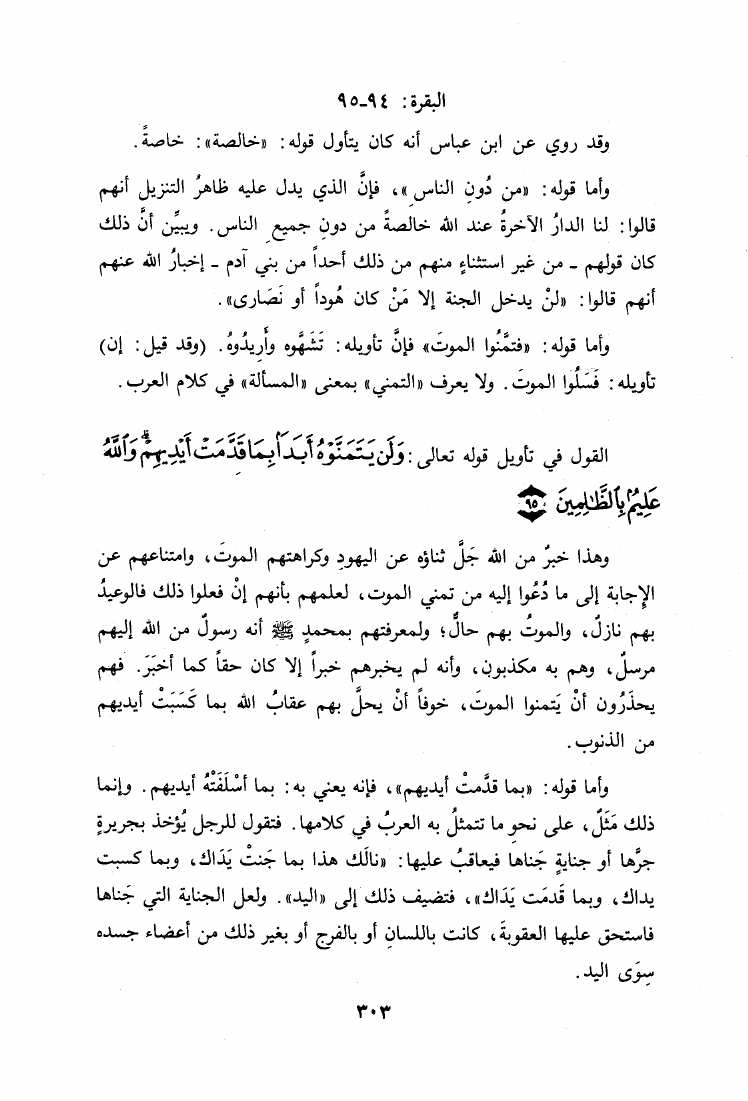 البقرة: ٩٤-٩٥
وقد روي عن ابن عباس أنه كان يتأول قوله: «خالصة»: خاصةً.
وأما قوله: «من دُونِ الناس»، فإنَّ الذي يدل عليه ظاهرُ التنزيل أنهم
قالوا: لنا الدارُ الآخرةُ عند الله خالصةً من دونِ جميعِ الناس. ويبيِّن أنَّ ذلك
كان قولهم - من غير استثناءٍ منهم من ذلك أحداً من بني آدم - إخبارُ الله عنهم
أنهم قالوا: «لنْ يدخل الجنة إلا مَنْ كان هُوداً أو نَصَارى».
وأما قوله: «فتمَّنُوا الموتَ» فإنَّ تأويله: تَشَهَّوه وأَرِيدُوهُ. (وقد قيل: إن)
تأويله: فَسَلُوا الموتَ. ولا يعرف «التمني» بمعنى «المسألة» في كلام العرب.
القول في تأويل قوله تعالى: وَلَن يَتَمَنَّوْهُ أَبَدًۢا بِمَا قَدَّمَتْ أَيْدِيهِمْ ۗ وَٱللَّهُ
عَلِيمٌۢ بِٱلظَّٰلِمِينَ ٩٥
وهذا خبرٌ من الله جَلَّ ثناؤه عن اليهودِ وكراهتهم الموتَ، وامتناعهم عن
الإجابة إلى ما دُعُوا إليه من تمني الموت، لعلمهم بأنهم إنْ فعلوا ذلك فالوعيدُ
بهم نازلٌ، والموتُ بهم حالٌّ؛ ولمعرفتهم بمحمدٍ ﷺ أنه رسولٌ من الله إليهم
مرسلٌ، وهم به مكذبون، وأنه لم يخبرهم خبراً إلا كان حقاً كما أخبَرَ. فهم
يحذَرُون أنْ يَتمنوا الموتَ، خوفاً أنْ يحلَّ بهم عقابُ الله بما كَسَبَتْ أيديهم
من الذنوب.
وأما قوله: «بما قدَّمتْ أيديهم»، فإنه يعني به: بما أسْلَفَتْهُ أيديهم. وإنما
ذلك مَثَلٌ، على نحوِ ما تتمثلُ به العربُ في كلامها. فتقول للرجل يُؤخذ بجريرةٍ
جرَّها أو جنايةٍ جَناها فيعاقبُ عليها: «نالَك هذا بما جَنتْ يَدَاك، وبما كسبت
يداك، وبما قَدمَت يَدَاك»، فتضيف ذلك إلى «اليد». ولعل الجناية التي جَناها
فاستحق عليها العقوبةَ، كانت باللسانِ أو بالفرج أو بغير ذلك من أعضاء جسده
سِوَى اليد.
٣٠٣